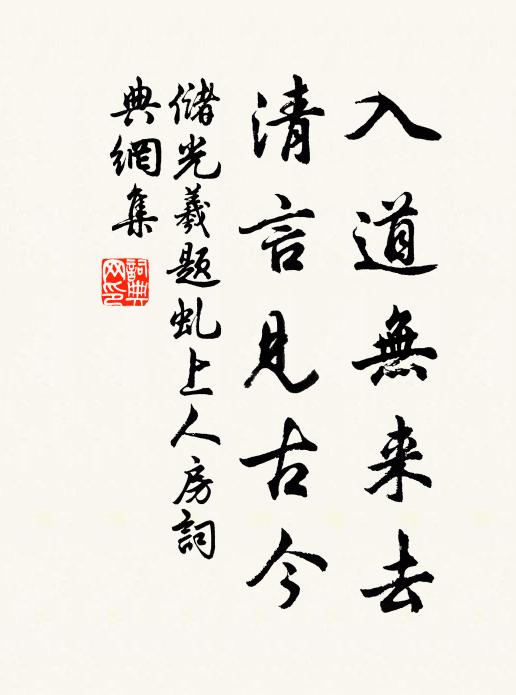 入道無来去
清言見古今
儲光羲題虬上人房詞
典網集
詞典网印